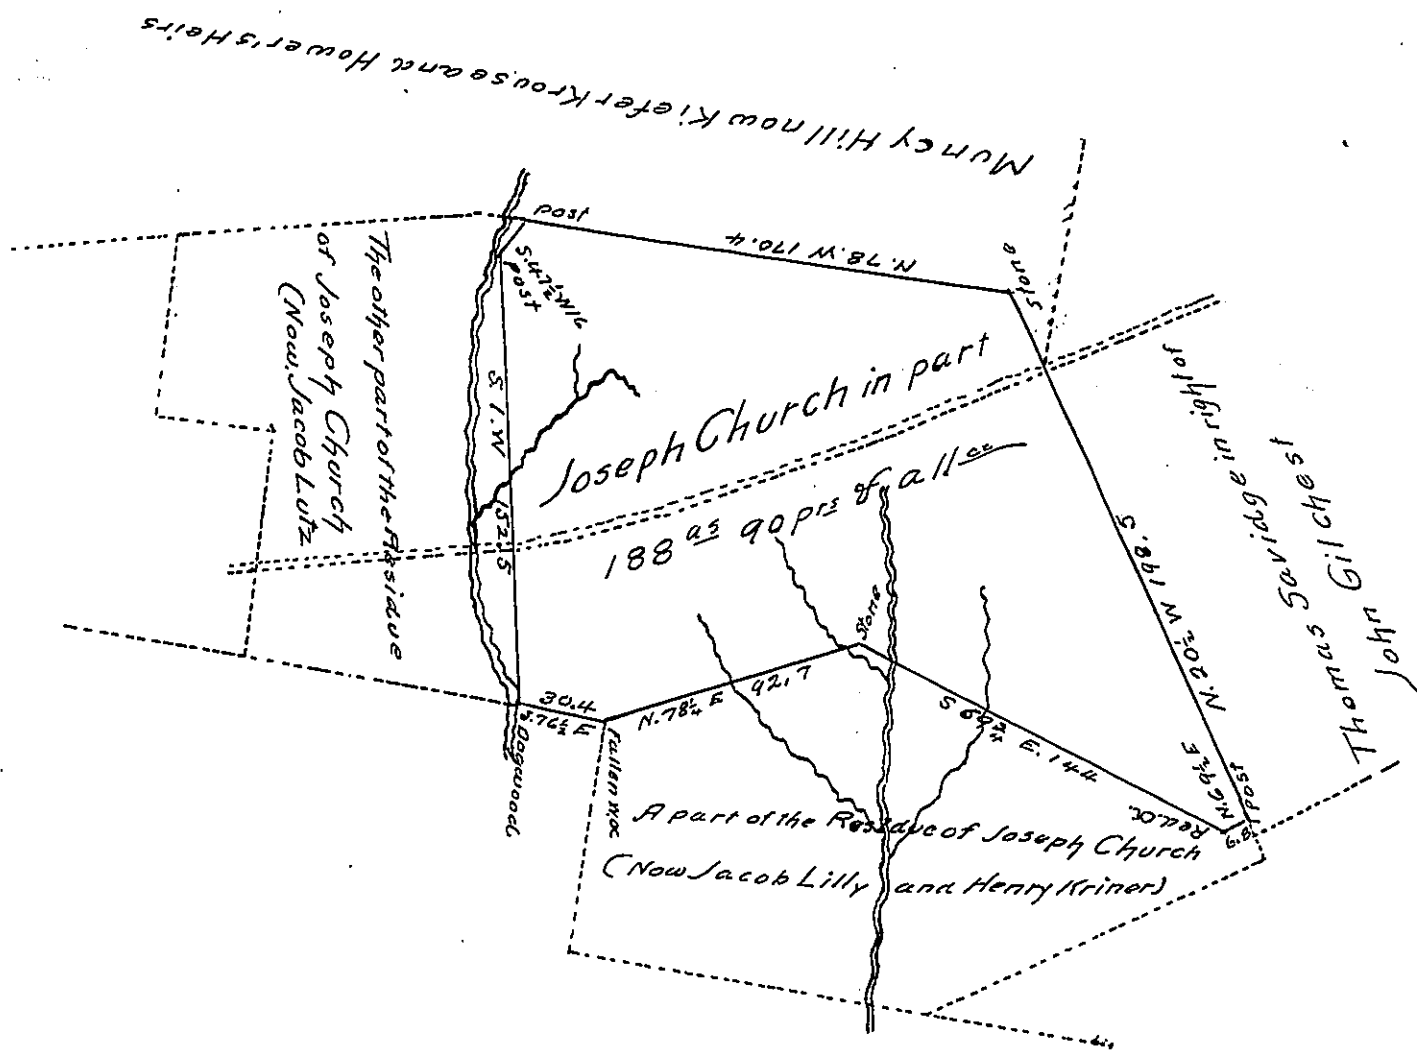 Muncy Hill now Kiefer Krouse and Hower's Heirs
post
N. 78. W 170.4
Stone
S. 47½ W 16
post
The other part of the Residue
of Joseph Church
(Now Jacob Lutz
S. 1. W 152.5
Joseph Church in part
188 as 90 prs & all ce
Thomas Savidge in right of
John Gilchest
N. 20½ W 198.5
Stone
30.4
S. 76½ E
Dogwood
N. 78¼ E 92.7
Fallen W.O.
S 69¾ E. 144
N. 69½ E
9.8
Post
Red.O.
A part of the Residue of Joseph Church
(Now Jacob Lilly and Henry Kriner)